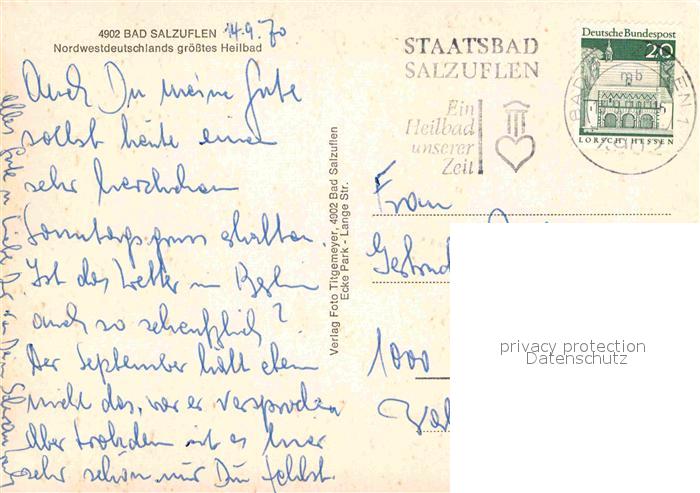 4902 BAD SALZUFLEN
14.9.70
Nordwestdeutschlands größtes Heilbad
Auch Du meine Gute
sollst heute einen
sehr herzlichen
Sonntagsgruss erhalten.
Ist das Wetter in Berlin
auch so scheußlich?
Der September hält eben
nicht das, was er versprochen
Aber trotzdem ist es hier
sehr schön, nur Du fehlst.
alles Gute u. Liebe Dir von Deiner
Verlag Foto Titgemeyer, 4902 Bad Salzuflen
Ecke Park - Lange Str.
STAATSBAD
SALZUFLEN
Ein
Heilbad
unserer
Zeit
Deutsche Bundespost
20
LORSCH/HESSEN
Frau
1000
privacy protection
Datenschutz